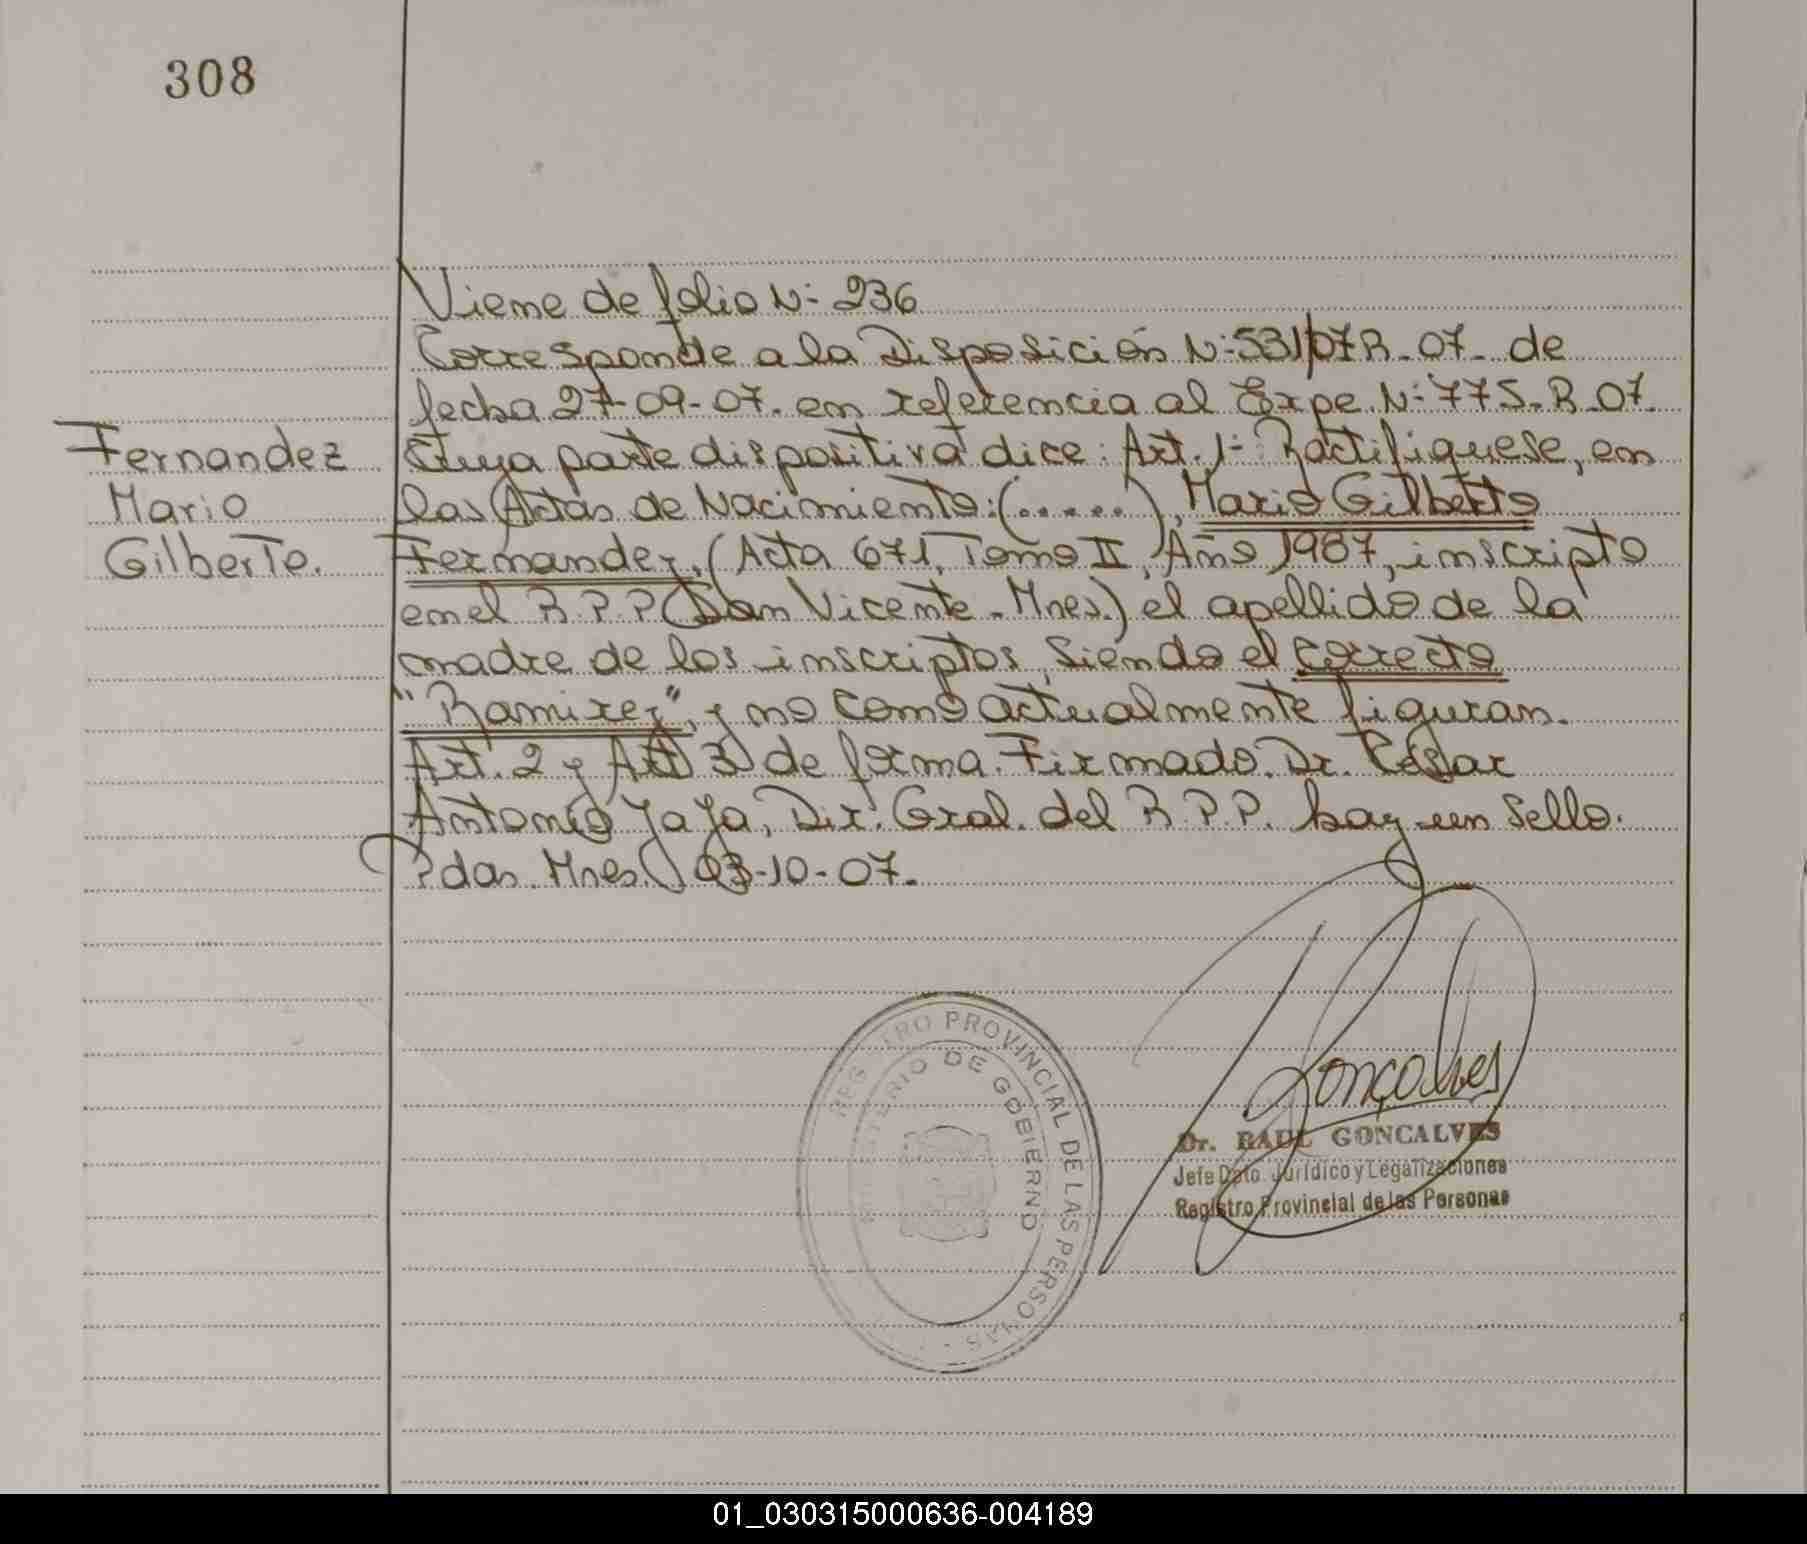 308
Viene de folio N- 236
Corresponde a la Disposición N-531/07 R-07- de
fecha 27-09-07. en referencia al Expe. N- 775-R-07.
Fernandez
Mario
Gilberto.
Cuya parte dispositiva dice: Art. 1- Ractifiquese, en
las Actas de Nacimiento: (.....), Mario Gilberto
Fernandez, (Acta 671, Tomo II, Año 1987, inscripto
en el R.P.P (San Vicente - Mnes.) el apellido de la
madre de los inscriptos, siendo el correcto
"Ramirez", y no como actualmente figuran.
Art. 2 y Art 3 de forma. Firmado. Dr. César
Antonio Yaya, Dir. Gral. del R.P.P. hay un Sello.
Pdas. Mnes. 03-10-07.
REG TRO PROVINCIAL DE LAS PERSONAS
MINISTERIO DE GOBIERNO
Gonçalves
Dr. RAUL GONCALVES
Jefe Dpto. Jurídico y Legalizaciones
Registro Provincial de las Personas
01_030315000636-004189